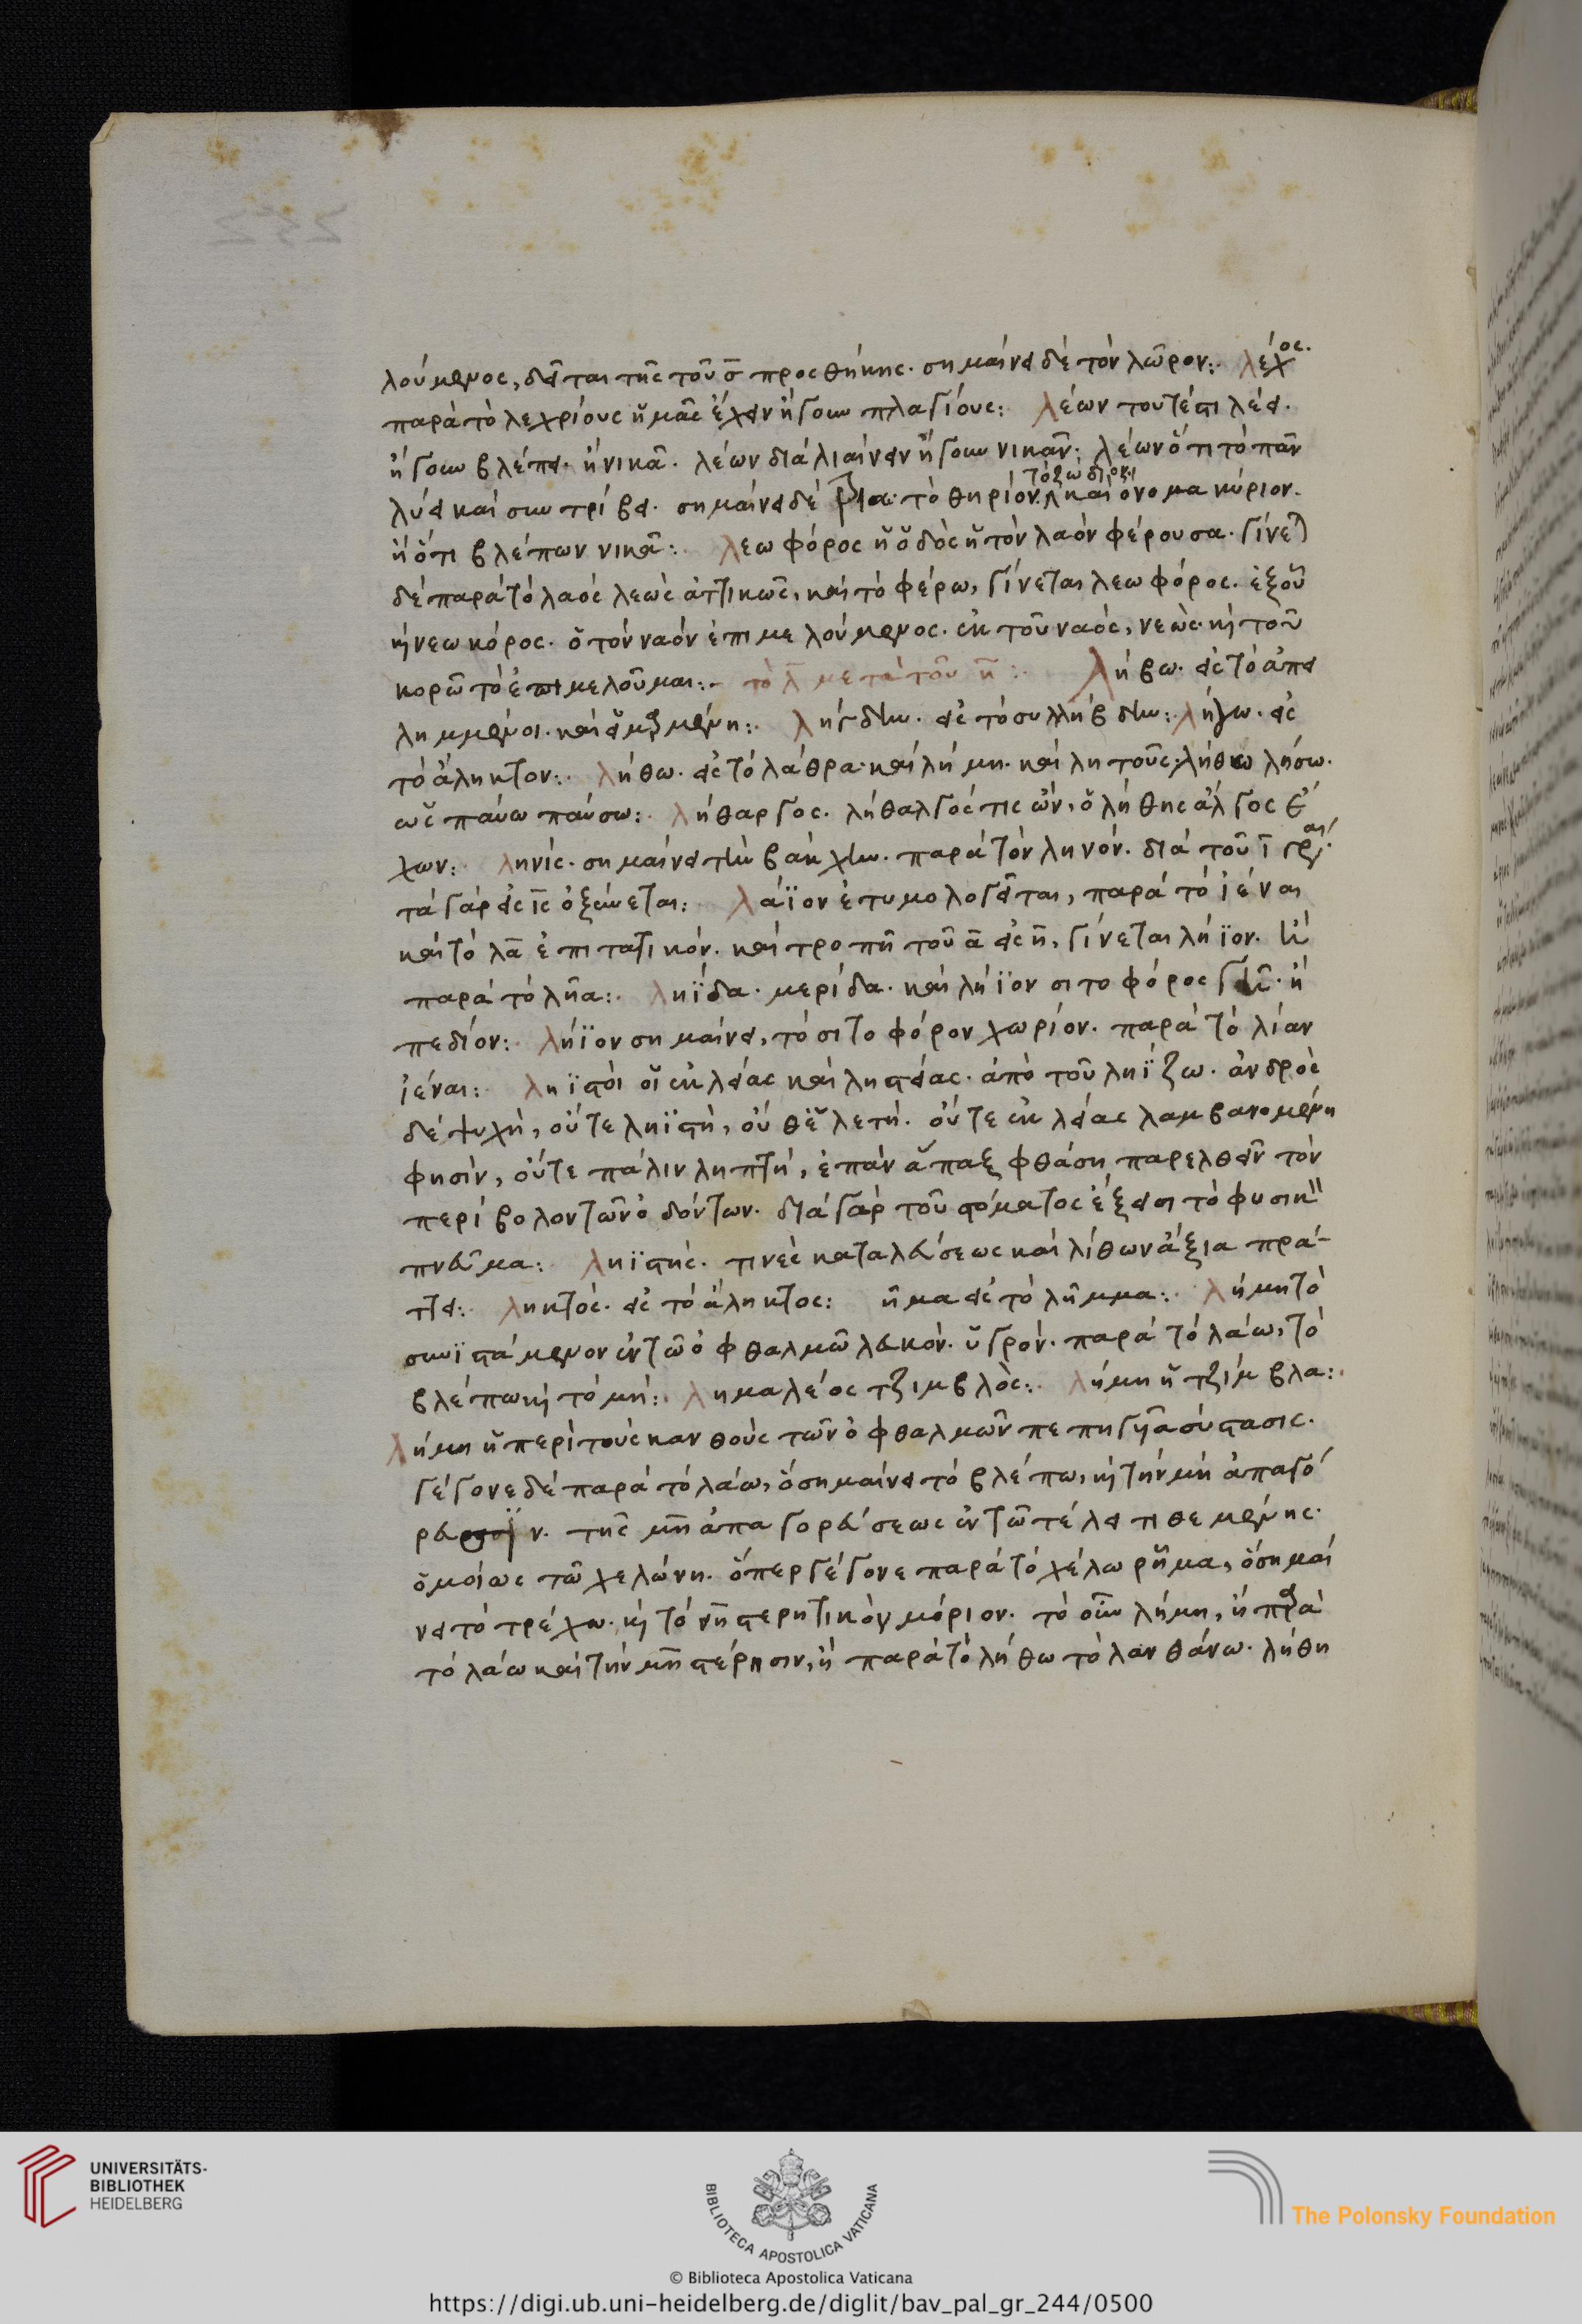 λούμενος, δεῖται τῆς τοῦ σ̄ προσθήκης. σημαίνει δὲ τὸν λῶρον:. λέχος.
παρὰ τὸ λεχρίους ἡμᾶς ἔχειν ἤγουν πλαγίους: λέων τουτέστι λέει.
ἤγουν βλέπει. ἢ νικᾶ. λέων διὰ λιαίνειν ἤγουν νικᾶν: λέων ὅτι τὸ πᾶν
λύει καὶ συντρίβει. σημαίνει δὲ τὸ θηρίον. καὶ ὄνομα κύριον.
ἢ ὅτι βλέπων νικᾶ:. λεωφόρος ἡ ὁδὸς ἡ τὸν λαὸν φέρουσα. γίνεται
δὲ παρὰ τὸ λαὸς λεὼς ἀττικῶς, καὶ τὸ φέρω, γίνεται λεωφόρος. ἐξ οὗ
κὴ νεωκόρος. ὁ τὸν ναὸν ἐπιμελούμενος. ἐκ τοῦ ναὸς, νεὼς. κὴ τοῦ
κορῶ τὸ ἐπιμελοῦμαι:. τὸ λ̄ μετὰ τοῦ η̄:. λήβω. εἰς τὸ ἀπει
λημμένοι. καὶ εἱμαρμένη:. λήγδην. εἰς τὸ συλλήβδην:. λήγω. εἰς
τὸ ἄληκτον:. λήθω. εἰς τὸ λάθρα. καὶ λήμη. καὶ λητοῦς: λήθω λήσω.
ὡς παύω παύσω:. λήθαργος. λήθαλγός τις ὤν, ὁ λήθης ἄλγος ἔ
χων: ληνίς. σημαίνει τὴν βάκχην. παρὰ τὸν ληνόν. διὰ τοῦ ῑ γρ.
τὰ γὰρ εἰς ις̄ ὀξύνεται: λάϊον ἐτυμολογεῖται, παρὰ τὸ ἰέναι
καὶ τὸ λᾱ ἐπιτατικόν. καὶ τροπῇ τοῦ ᾱ εἰς η̄, γίνεται λήϊον. ἢ
παρὰ τὸ λῆα:. ληΐδα. μερίδα. καὶ λήϊον σιτοφόρος γῆ. ἢ
πεδίον: λήϊον σημαίνει, τὸ σιτοφόρον χωρίον. παρὰ τὸ λίαν
ἰέναι:. ληϊστοὶ οἱ ἐκ λείας καὶ λῃστείας. ἀπὸ τοῦ ληΐζω. ἀνδρὸς
δὲ ψυχὴ, οὔτε ληϊστὴ, οὐθ' ἑλετή. οὔτε ἐκ λείας λαμβανομένη
φησὶν, οὔτε πάλιν ληπτή, ἐπὰν ἅπαξ φθάση παρελθεῖν τὸν
περίβολον τῶν ὀδόντων. διὰ γὰρ τοῦ στόματος ἔξεισι τὸ φυσικὸν
πνεῦμα: ληϊστής. τινὲς καταλεύσεως καὶ λίθων ἄξια πρά-
ττει: ληκτὸς. εἰς τὸ ἄληκτος: ῆμα εἰς τὸ λῆμμα:. λήμη τὸ
συνϊστάμενον ἐν τῶ ὀφθαλμῶ λευκὸν. ὑγρόν. παρὰ τὸ λάω, τὸ
βλέπω κὴ τὸ μή:. λημαλέος τζιμβλὸς:. λήμη ἡ τζίμβλα:.
λήμη ἡ περὶ τοὺς κανθοὺς τῶν ὀφθαλμῶν πεπηγυῖα σύστασις.
γέγονε δὲ παρὰ τὸ λάω, ὃ σημαίνει τὸ βλέπω, κὴ τὴν μὴ ἀπαγό
ρευσιν. τῆς μη̄ ἀπαγορεύσεως ἐν τῶ τέλει τιθεμένης.
ὁμοίως τῶ χελώνη. ὅπερ γέγονε παρὰ τὸ χέλω ρῆμα, ὃ σημαί
νει τὸ τρέχω. κὴ τὸ νη̄ στερητικὸν μόριον. τὸ οὖν λήμη, ἢ παρὰ
τὸ λάω καὶ τὴν μη̄ στέρησιν, ἢ παρὰ τὸ λήθω τὸ λανθάνω. λήθη
UNIVERSITÄTS-
BIBLIOTHEK
HEIDELBERG
BIBLIOTECA APOSTOLICA VATICANA
The Polonsky Foundation
© Biblioteca Apostolica Vaticana
https://digi.ub.uni-heidelberg.de/diglit/bav_pal_gr_244/0500